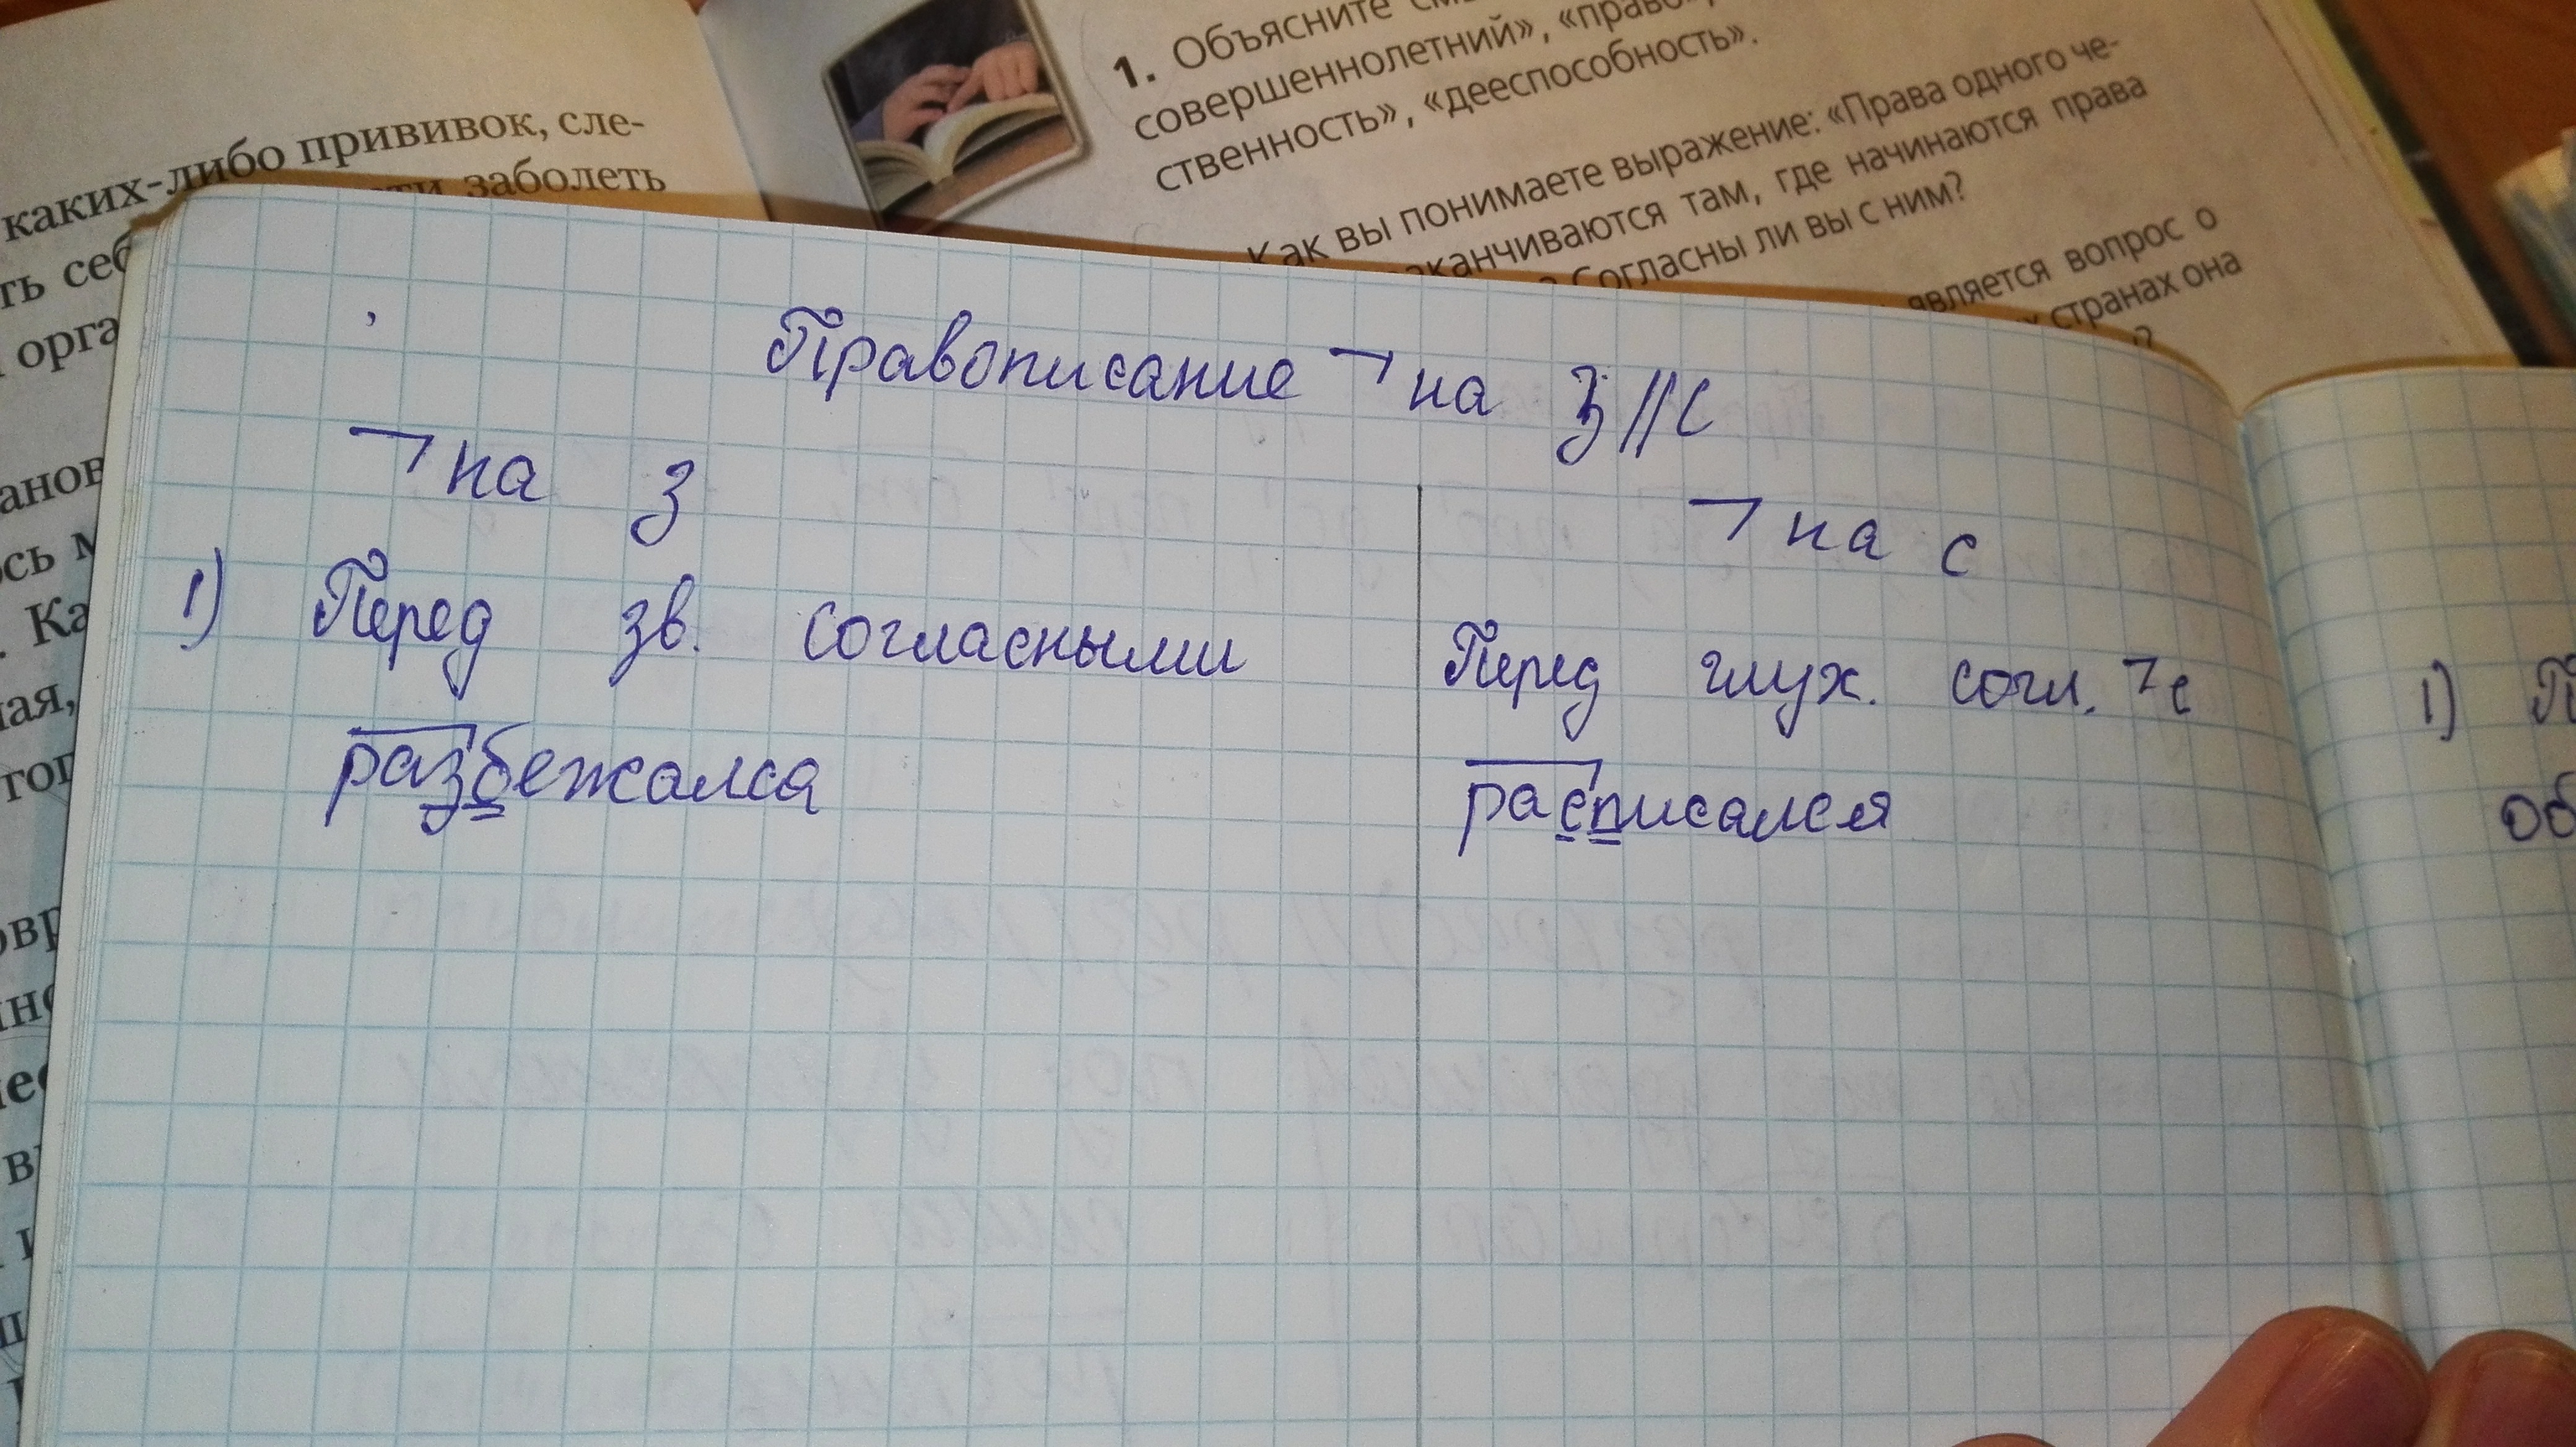 каких-либо прививок, сле-
заболеть
ть себ
орга
1. Объясните
совершеннолетний», «право
ственность», «дееспособность».
Как вы понимаете выражение: «Права одного че-
аканчиваются там, где начинаются права
Согласны ли вы с ним?
является вопрос о
странах она
Правописание ¬ на З//С
¬ на з
¬ на с
1) Перед зв. согласными
Перед глух. согл. ¬ с
разбежалса
расписался
1) П
об